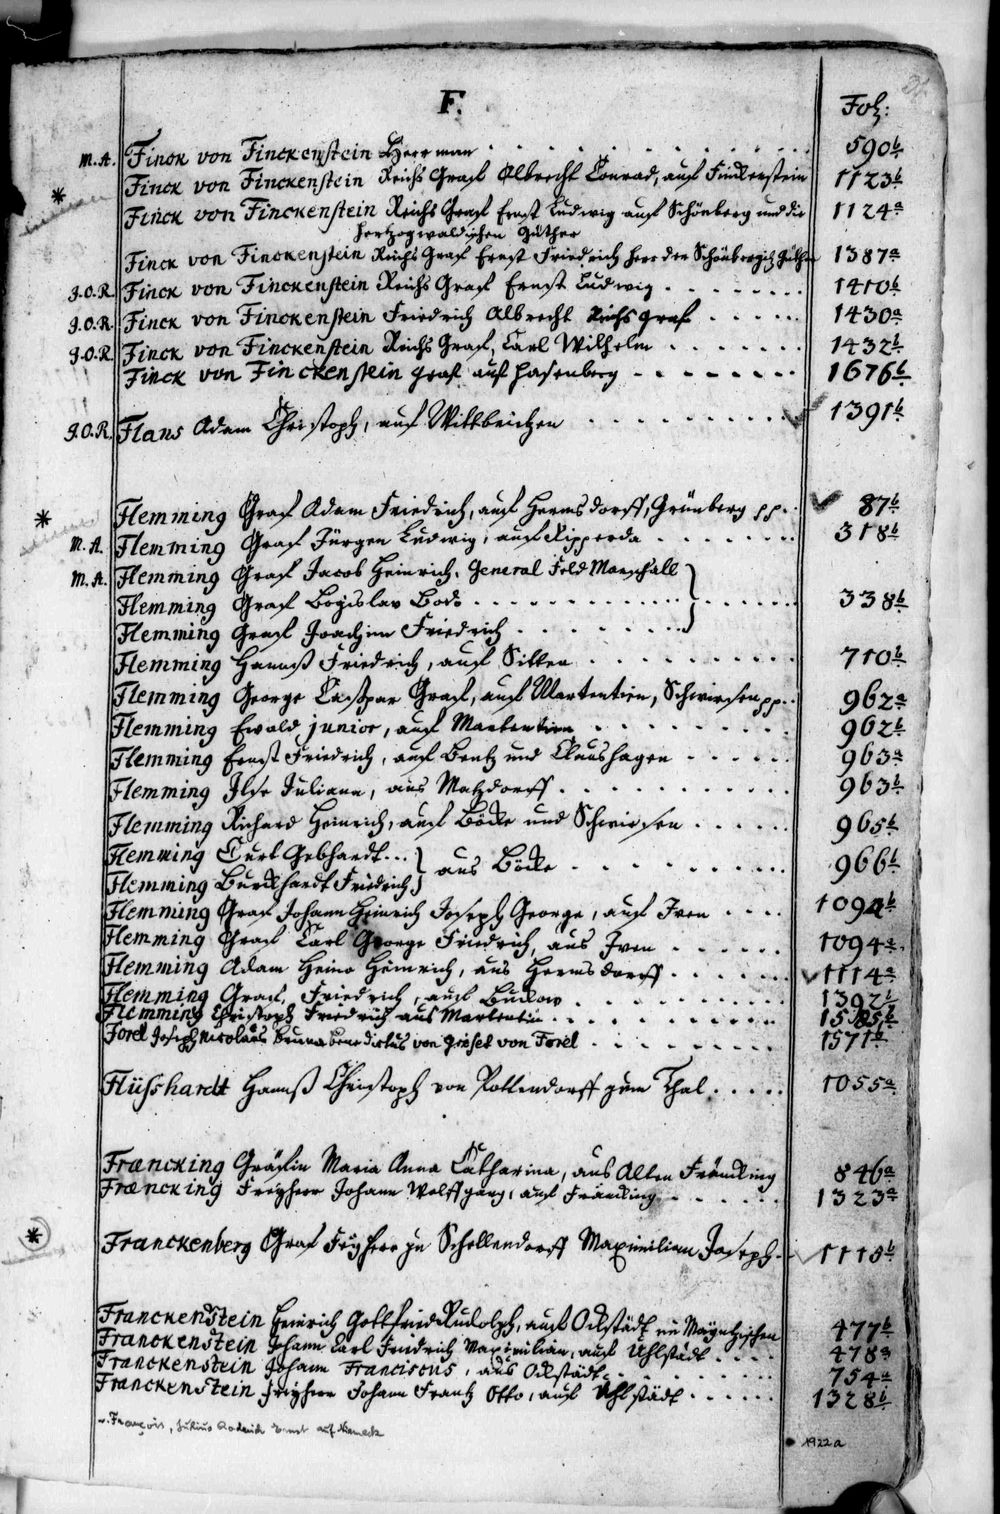 F.
Fol:
M.A. Finck von Finckenstein Herrman 590b
* Finck von Finckenstein Reichs Graf Albrecht Conrad, auf Finckenstein 1123b
Finck von Finckenstein Reichs Graf Ernst Ludwig auf Schönberg und die 1124a
Hertzogwaldischen Güther
Finck von Finckenstein Reichs Graf Ernst Friedrich Herr der Schönbergis. Güther 1387a
J.O.R. Finck von Finckenstein Reichs Graf Ernst Ludwig 1410b
J.O.R. Finck von Finckenstein Friedrich Albrecht Reichs Graf 1430a
J.O.R. Finck von Finckenstein Reichs Graf, Carl Wilhelm 1432b
Finck von Finckenstein Graf auf Hasenberg 1676b
J.O.R. Flans Adam Christoph, auf Wittbrietzen 1391b
* Flemming Graf Adam Friedrich, auf Hermsdorff, Grünberg pp. 87b
M.A. Flemming Graf Jürgen Ludwig, auf Ripperda 318b
M.A. Flemming Graf Jacob Heinrich, General Feld Marschall
Flemming Graf Bogislav Bodo 338b
Flemming Graf Joachim Friedrich
Flemming Hannß Friedrich, auf Sitten 710b
Flemming George Caßpar Graf, auf Martentien, Schwirsen pp. 962a
Flemming Ewald junior, auf Martentien 962b
Flemming Ernst Friedrich, auf Bentz und Claushagen 963a
Flemming Ilse Juliana, aus Matzdorff 963b
Flemming Richard Heinrich, auf Böcke und Schwirsen 965b
Flemming Curt Gebhardt
Flemming Burckhardt Friedrich } aus Böcke 966b
Flemming Graf Johann Heinrich Joseph George, auf Iven 1094b
Flemming Graf Carl George Friedrich, aus Iven 1094a
Flemming Adam Heino Heinrich, aus Hermsdorff 1114a
Flemming Graf, Friedrich, auf Buckow 1392b
Flemming Christoph Friedrich aus Martentin 1585b
Forel Joseph Nicolaus Bruno Benedictus von Griset von Forel 1571b
Flüsshardt Hannß Christoph von Pottendorff zum Thal 1055a
Fræncking Gräfin Maria Anna Catharina, aus Alten Fräncking 846a
Fræncking Freyherr Johann Wolffgang, auf Fräncking 1323a
* Franckenberg Graf Freyherr zu Schellendorff Maximilian Joseph 1115b
Franckenstein Heinrich Gottfried Rudolph, auf Ockstädt im Mayntzischen 477b
Franckenstein Johann Carl Friedrich Maximilian, auf Uhlstädt 478a
Franckenstein Johann Franciscus, aus Ockstädt 754a
Franckenstein Freyherr Johann Frantz Otto, auf Uhlstädt 1328b
v. François, Julius Roderich Ernst auf Niemeck 1922a